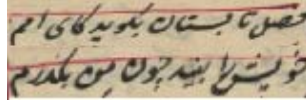 فصل تابستان بگوید کای امم
خویش را بیند چون من بگذرم